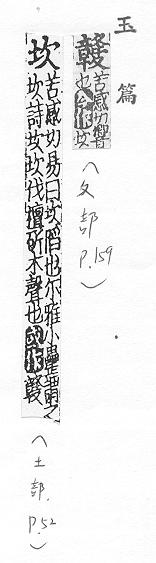 玉篇
竷
苦感切響
也今作坎
(夊部 P.159)
坎
苦感切易曰坎陷也尔雅小罍謂之
坎詩坎坎伐檀斫木聲也或作竷
(土部 P.52)